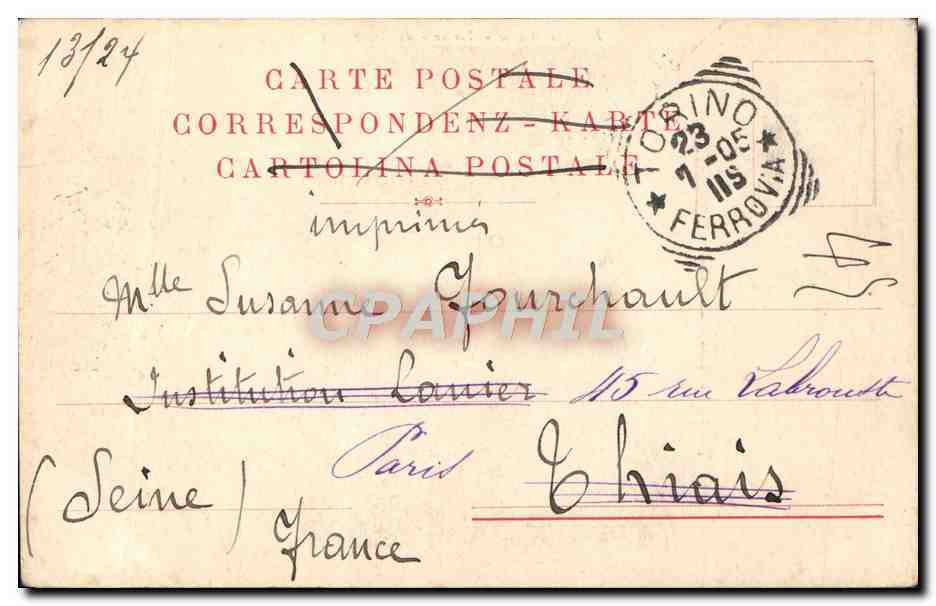 13/24
CARTE POSTALE
CORRESPONDENZ - KARTE
CARTOLINA POSTALE
TORINO
23
7-05
11S
★ FERROVIA ★
imprimés
Mlle Susanne Fourchault
CPAPHIL
Institution Lanier 45 rue Labrouste
Paris
Thiais
(Seine)
France